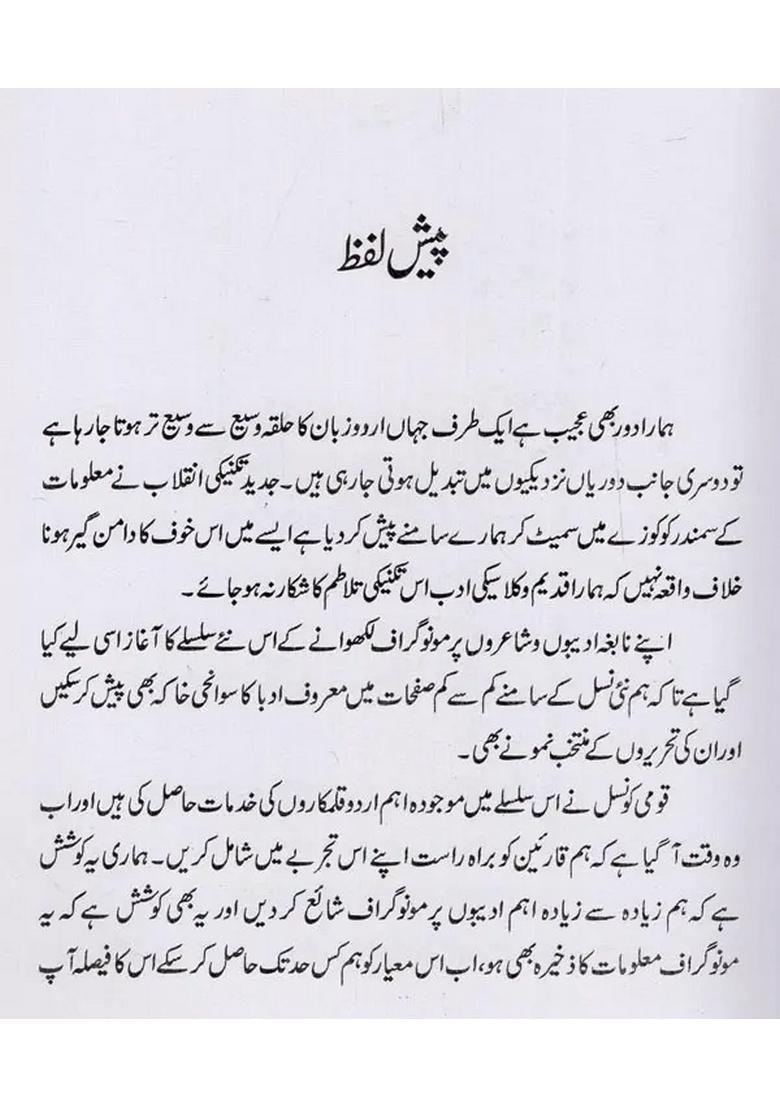 پیش لفظ
ہمارا دور بھی عجیب ہے ایک طرف جہاں اردو زبان کا حلقہ وسیع سے وسیع تر ہوتا جا رہا ہے
تو دوسری جانب دوریاں نزدیکیوں میں تبدیل ہوتی جا رہی ہیں۔ جدید تکنیکی انقلاب نے معلومات
کے سمندر کو کوزے میں سمیٹ کر ہمارے سامنے پیش کر دیا ہے ایسے میں اس خوف کا دامن گیر ہونا
خلاف واقعہ نہیں کہ ہمارا قدیم و کلاسیکی ادب اس تکنیکی تلاطم کا شکار نہ ہو جائے۔
اپنے نابغہ ادیبوں و شاعروں پر مونوگراف لکھوانے کے اس نئے سلسلے کا آغاز اسی لیے کیا
گیا ہے تا کہ ہم نئی نسل کے سامنے کم سے کم صفحات میں معروف ادبا کا سوانحی خاکہ بھی پیش کر سکیں
اور ان کی تحریروں کے منتخب نمونے بھی۔
قومی کونسل نے اس سلسلے میں موجودہ اہم اردو قلمکاروں کی خدمات حاصل کی ہیں اور اب
وہ وقت آ گیا ہے کہ ہم قارئین کو براہ راست اپنے اس تجربے میں شامل کریں۔ ہماری یہ کوشش
ہے کہ ہم زیادہ سے زیادہ اہم ادیبوں پر مونوگراف شائع کر دیں اور یہ بھی کوشش ہے کہ یہ
مونوگراف معلومات کا ذخیرہ بھی ہو، اب اس معیار کو ہم کس حد تک حاصل کر سکے اس کا فیصلہ آپ